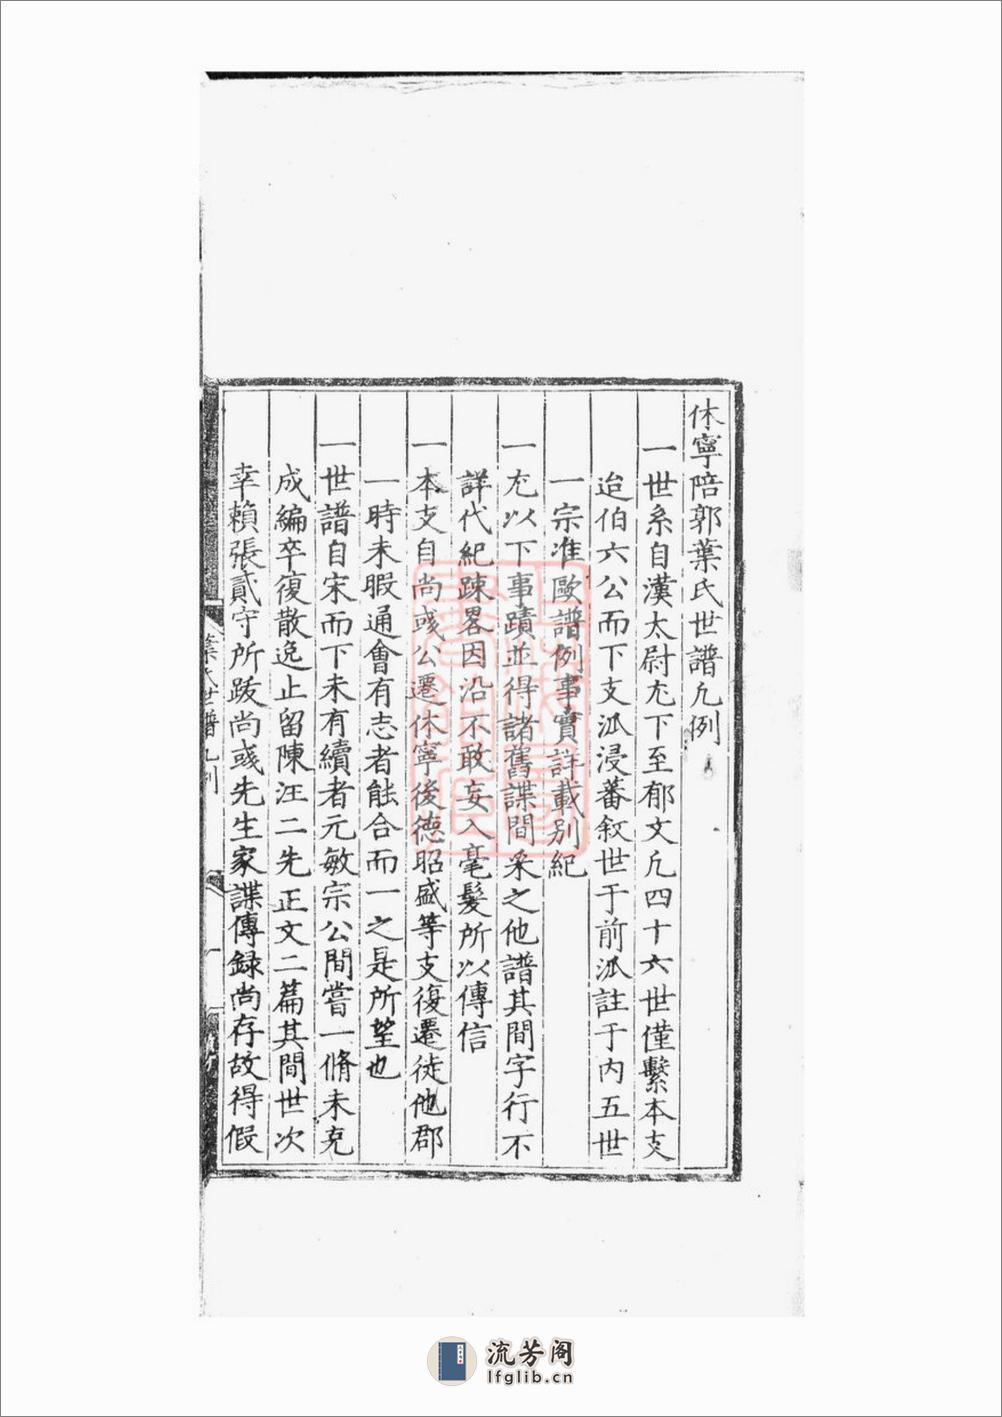 休寧陪郭葉氏世譜凢例
一世系自漢太尉尢下至郁文凢四十六世僅繫本支
迨伯六公而下支派浸蕃敘世于前派註于內五世
一宗准歐譜例事實詳載別紀
一尢以下事蹟並得諸舊諜間采之他譜其間字行不
詳代紀踈畧因沿不敢妄入毫髮所以傳信
一本支自尚彧公遷休寧後德昭盛等支復遷徙他郡
一時未暇通會有志者能合而一之是所望也
一世譜自宋而下未有續者元敏宗公間嘗一脩未克
成編卒復散逸止留陳汪二先正文二篇其間世次
幸賴張貳守所跋尚彧先生家諜傳録尚存故得假
葉氏世譜凢例
流芳阁
lfglib.cn